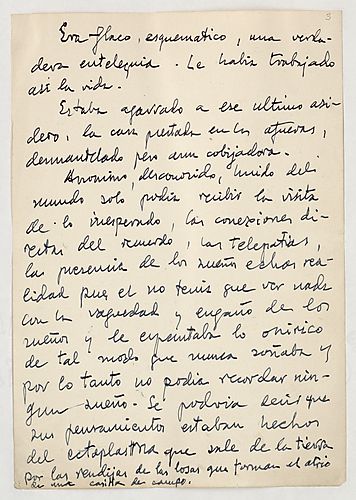 3
Era flaco, esquematico, una verda-
dera entelequia. Le habia trabajado
asi la vida.
Estaba agarrado a ese ultimo asi-
dero, la casa prestada en las afueras,
desmantelado pero aun cobijadora.
Anonimo, desconocido, huido del
mundo solo podia recibir la visita
de lo inesperado, las conexiones di-
rectas del recuerdo, las telepatias,
las presencia de los sueños echos rea-
lidad pues el no tenia que ver nada
con la vaguedad y engaño de los
sueños y le espantaba lo onirico
de tal modo que nunca soñaba y
por lo tanto no podia recordar nin-
gun sueño. Se podria decir que
sus pensamientos estaban hechos
del ectoplasma que sale de la tierra
por las rendijas de las losas que forman el atrio
de una casilla de campo.